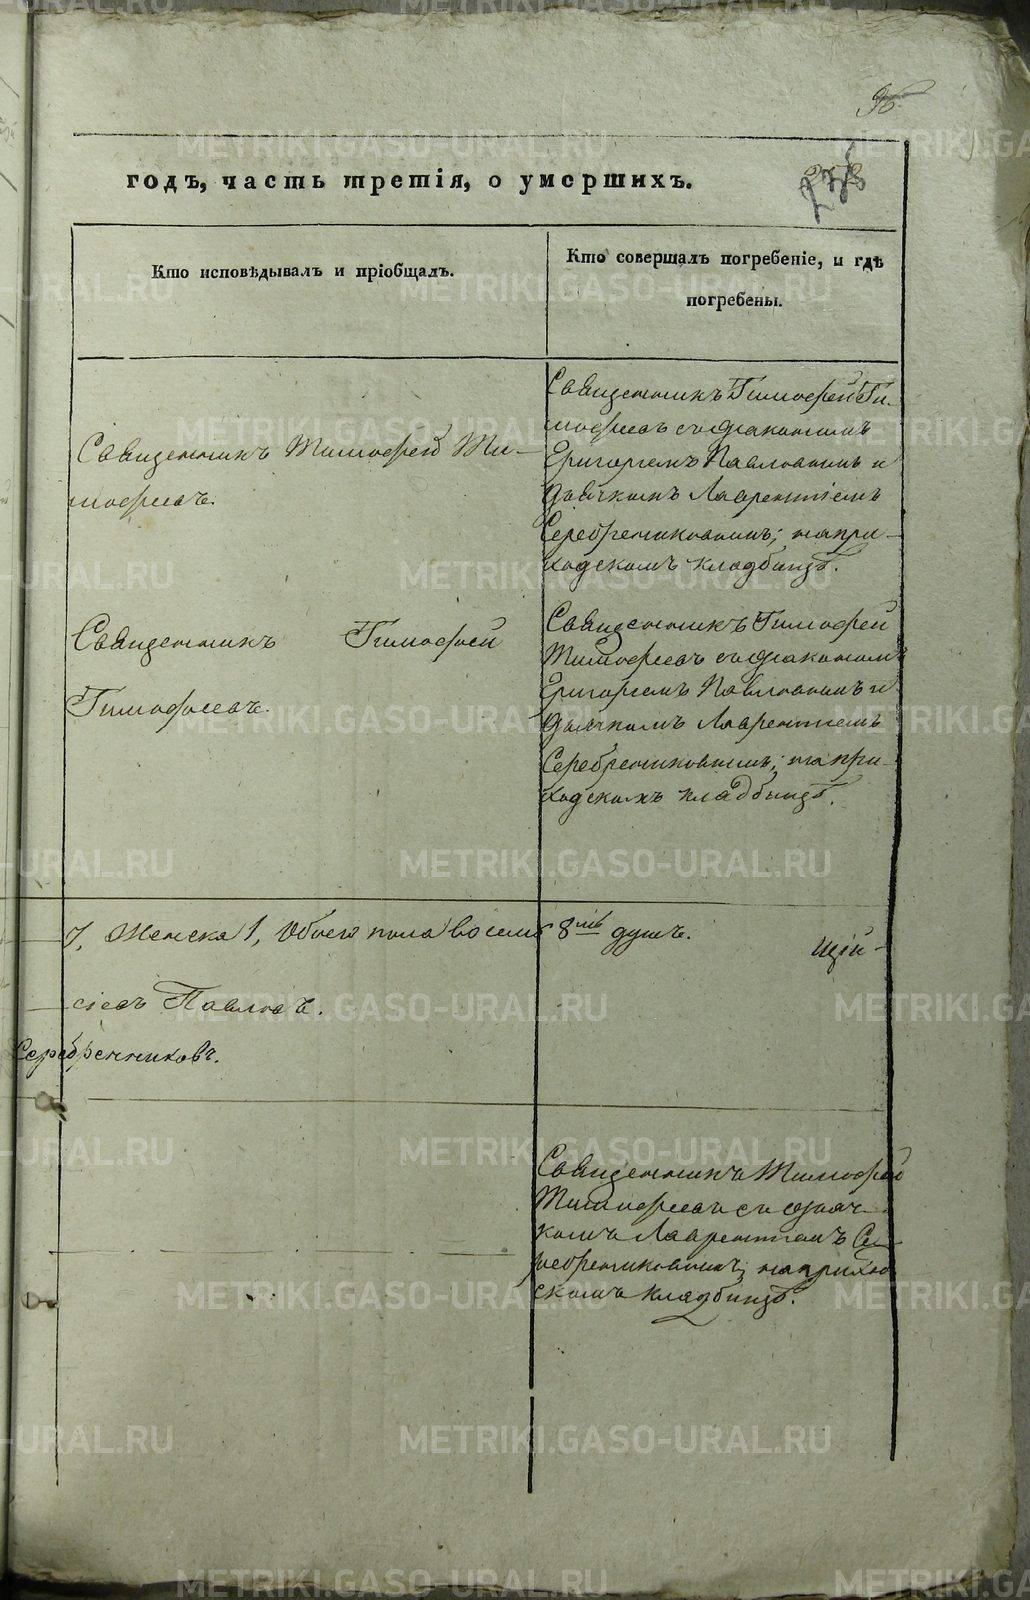 96.
годъ, часть третія, о умершихъ.
Кто исповѣдывалъ и пріобщалъ.
Кто совершалъ погребеніе, и гдѣ
погребены.
Священникъ Тимофей Ти-
мофеевъ.
Священникъ Тимофей Ти-
мофеевъ съ діакономъ
Григоріемъ Павловымъ и
дьячкомъ Лаврентіемъ
Серебренниковымъ; на при-
ходскомъ кладбищѣ.
Священникъ Тимофей
Тимофеевъ.
Священникъ Тимофей
Тимофеевъ съ діакономъ
Григоріемъ Павловымъ и
дьячкомъ Лаврентіемъ
Серебренниковымъ; на при-
ходскомъ кладбищѣ.
7, Женска 1, Обоего пола восемь 8мь душъ.
щій-
сіевъ Павловъ.
Серебренниковъ.
Священникъ Тимофей
Тимофеевъ съ дьяч-
комъ Лаврентіемъ Се-
ребрениковымъ; на приход
скомъ кладбищѣ.
METRIKI.GASO-URAL.RU